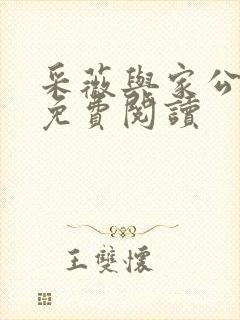 采薇與家公
免費閱讀
王雙懷